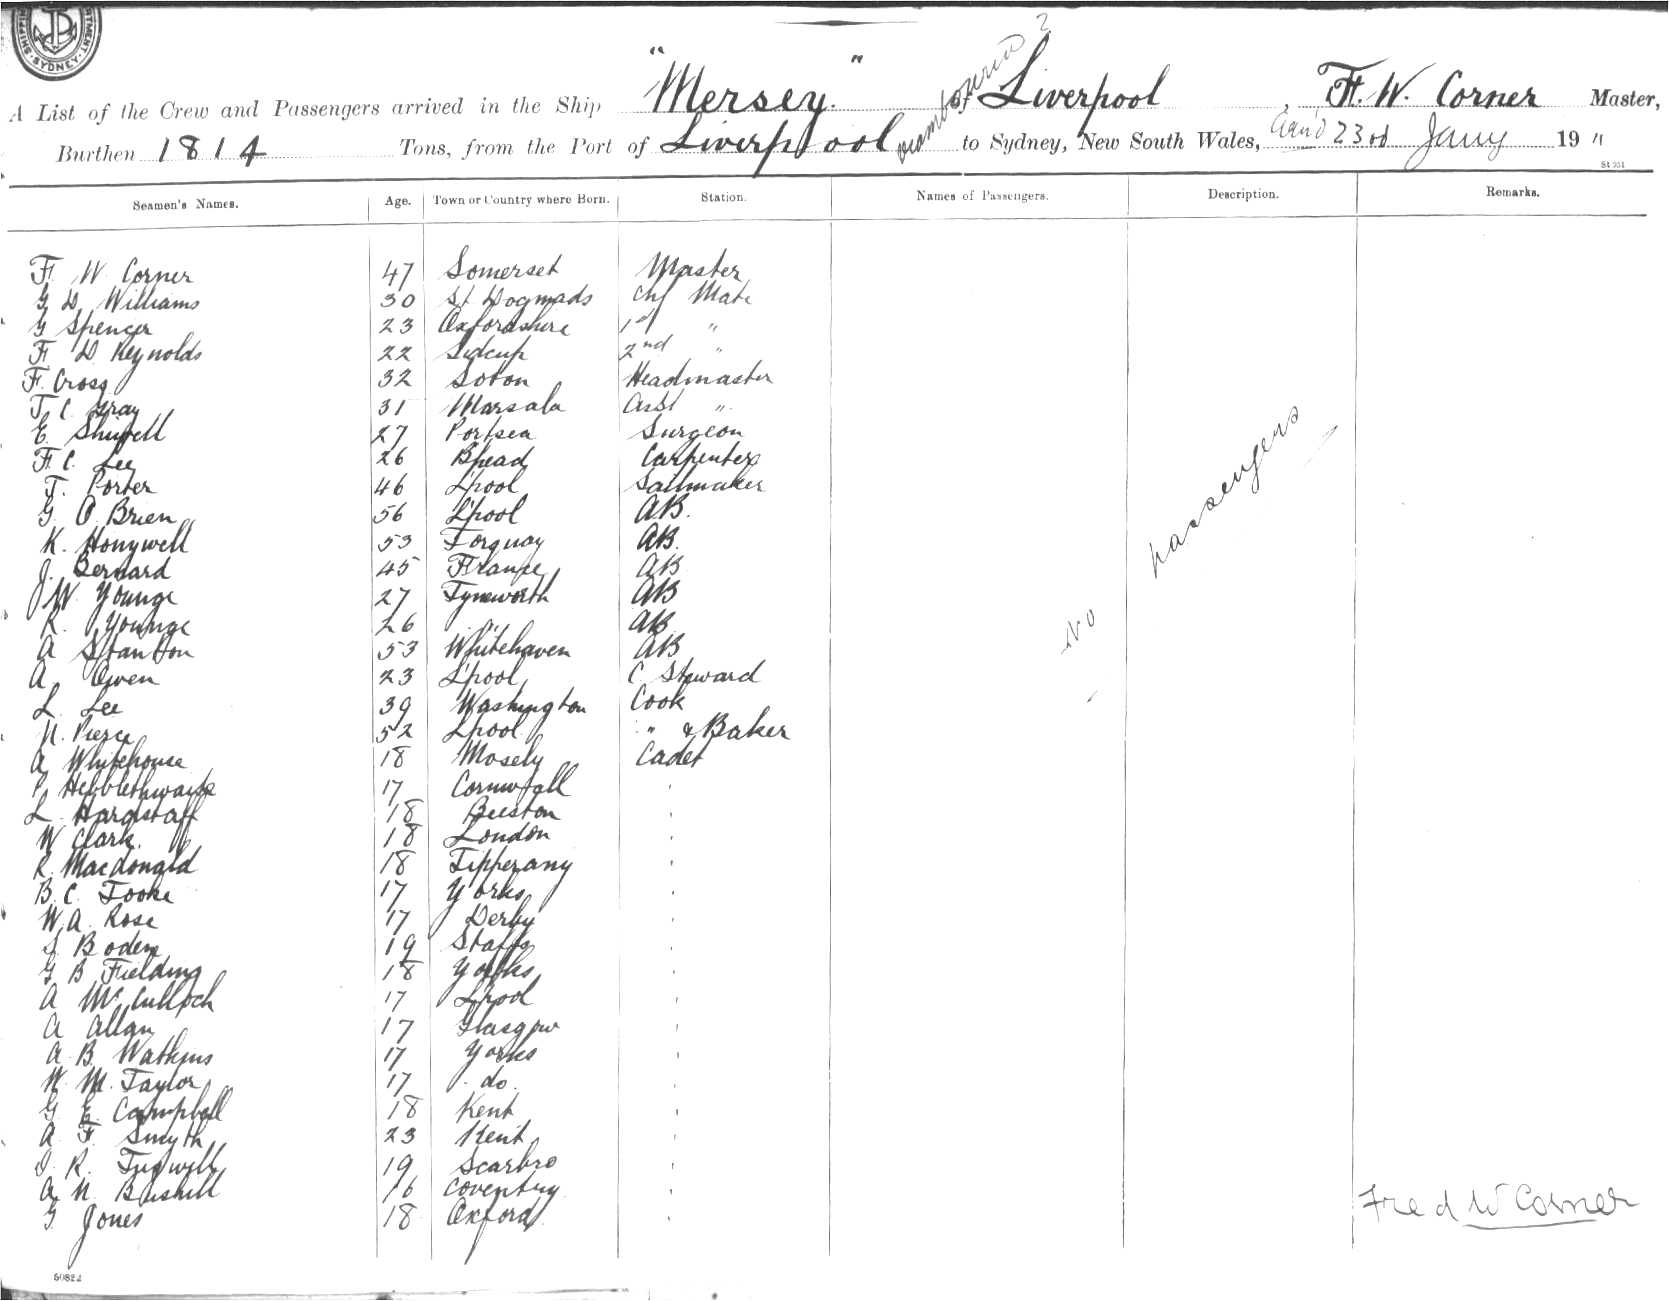 SYDNEY
"Mersey."
A List of the Crew and Passengers arrived in the Ship "Mersey" of Liverpool, F. W. Corner Master,
Burthen 1814 Tons, from the Port of Liverpool to Sydney, New South Wales, 23rd Jany 1911
St 231
Seamen's Names. Age. Town or Country where Born. Station. Names of Passengers. Description. Remarks.
F W Corner 47 Somerset Master
G D Williams 30 St Dogmads Chf Mate
G Spencer 23 Oxfordshire 1st "
F D Reynolds 22 Sidcup 2nd "
F. Cross 32 Soton Headmaster
T C Gray 31 Marsala Asst "
E. 27 Portsea Surgeon
F. C. Lee 26 Bhead Carpenter
T. Porter 46 L'pool Sailmaker
G. O Brien 56 L'pool AB.
K. Honywell 53 Torquay AB.
J. Bernard 45 France AB
J W. Younge 27 Tyneworth AB
R. Younge 26 " AB
A Stanton 53 Whitehaven AB
A Owen 23 L'pool C Steward
L. Lee 39 Washington Cook
N. Pierce 52 Lpool " & Baker
A Whitehouse 18 Mosely Cadet
Hebblethwaite 17 Cornwall '
L Hardstaff 18 Beeston '
W Clark. 18 London '
R. Macdonald 18 Tipperany '
B. C. Tooke 17 Yorks '
W. A. Rose 17 Derby '
Boden 19 Staffs '
G B Fielding 18 Yorks '
A McCulloch 17 Lpool '
A Allan 17 Glasgow '
A B Watkins 17 Yorks '
W. M. Taylor 17 do. '
G. E. Campbell 18 Kent '
A F Smyth 23 Kent '
R. Tugwell 19 Scarbro '
A N Bushill 16 Coventry '
G Jones 18 Oxford '
No passengers
Fred W Corner
50822